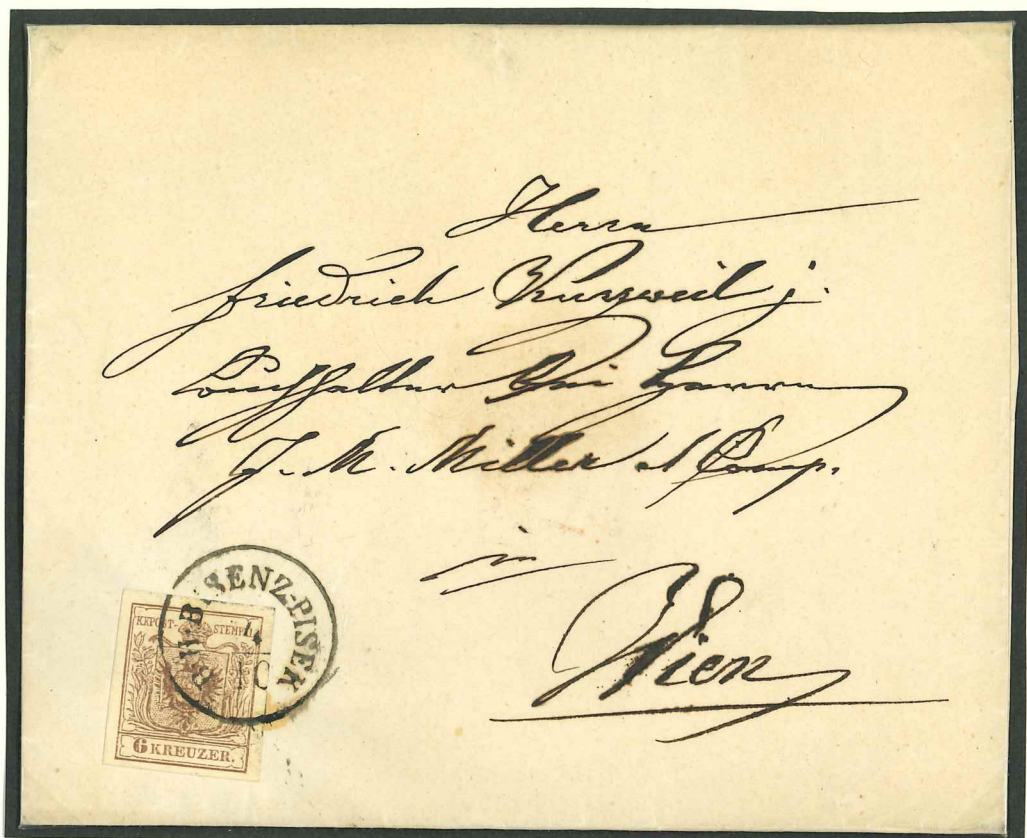 Herrn
Friedrich Kurzweil j.
Buchhalter bei Herrn
J. M. Miller & Comp.
in
Wien
B.H. BISENZ-PISEK
4
10
KKPOST-STEMPEL
6 KREUZER.